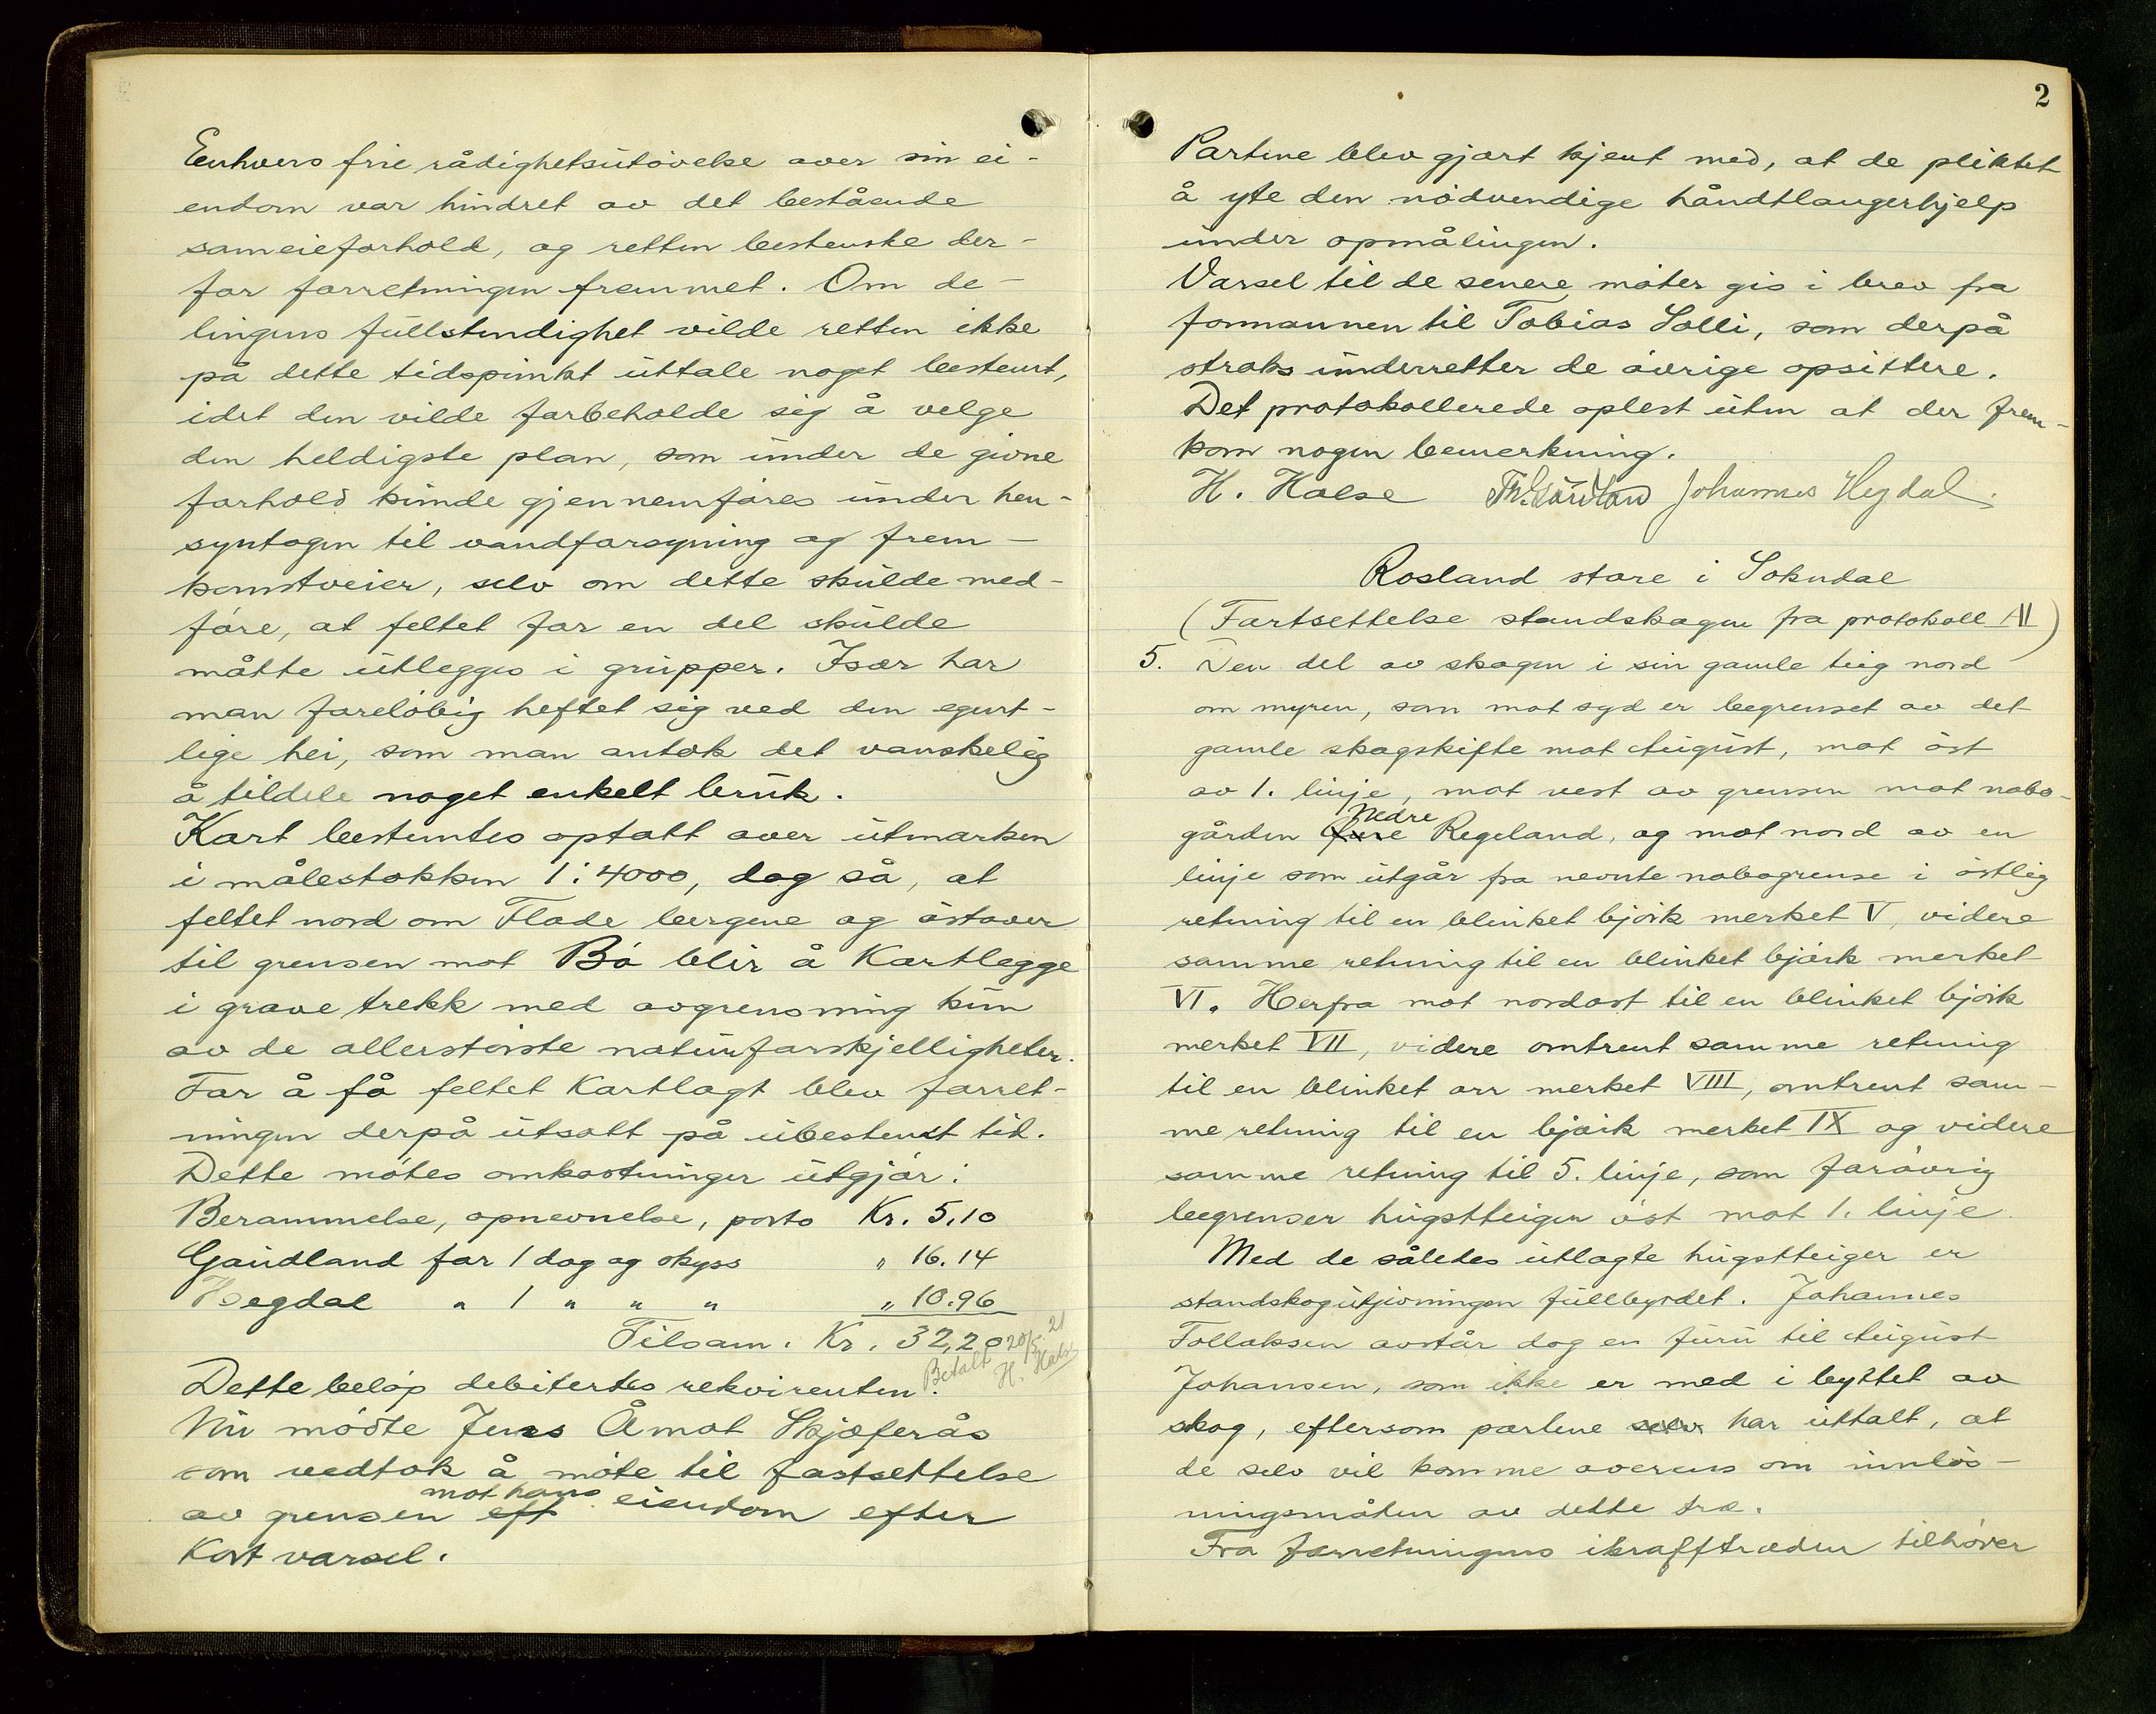 Eenhvers frie rådighetsutövelse over sin ei-
endom var hindret av det bestående
sameieforhold, og retten bestemte der-
for forretningen fremmet. Om de-
lingens fullstendighet vilde retten ikke
på dette tidspunkt uttale noget bestemt,
idet den vilde forbeholde sig å velge
den heldigste plan, som under de givne
forhold kunde gjennemföres under hen-
syntagen til vandforsyning og frem-
komstveier, selv om dette skulde med-
före, at feltet for en del skulde
måtte utlegges i grupper. Især har
man forelöbig heftet sig ved den egent-
lige hei, som man antok det vanskelig
å tildele noget enkelt bruk.
Kart bestemtes optatt over utmarken
i målestokken 1:4000, dog så, at
feltet nord om Flade bergene og östover
til grensen mot Bö blir å Kartlegge
i grove trekk med avgrensning kun
av de allerstörste naturforskjelligheter.
For å få feltet Kartlagt blev forret-
ningen derpå utsatt på ubestemt tid.
Dette mötes omkostninger utgjör:
Berammelse, opnevnelse, porto Kr. 5.10
Gaudland for 1 dag og skyss " 16.14
Hegdal " 1 " " " " 10.96
Tilsam. Kr. 32,20
Betalt 20/5.21
H. Halse
Dette belöp debitertes rekvirenten.
Nu mödte Jens Åmot Skjeferås
som vedtok å möte til fastsettelse
mot hans
av grensen eft eiendom efter
Kort varsel.
2
Partene blev gjort kjent med, at de pliktet
å yte den nödvendige håndtlangerhjelp
under opmålingen.
Varsel til de senere möter gis i brev fra
formannen til Tobias Solli, som derpå
straks underretter de övrige opsittere.
Det protokollerede oplest uten at der frem-
kom nogen bemerkning.
H. Halse Th. Gaudland Johannes Hegdal.
Rosland store i Sokndal
(Fortsettelse standskogen fra protokoll VI)
5. Den del av skogen i sin gamle teig nord
om myren, som mot syd er begrenset av det
gamle skogskifte mot August, mot öst
av 1. linje, mot vest av grensen mot nabo-
Nedre
gården Övre Regeland, og mot nord av en
linje som utgår fra nevnte nabogrense i östlig
retning til en blinket björk merket V, videre
samme retning til en blinket björk merket
VI. Herfra mot nordost til en blinket björk
merket VII, videre omtrent samme retning
til en blinket orr merket VIII, omtrent sam-
me retning til en bjørk merket IX og videre
samme retning til 5. linje, som forövrig
begrenser hugstteigen öst mot 1. linje.
Med de således utlagte hugstteiger er
standskogutjevningen fullbyrdet. Johannes
Tollaksen avstår dog en furu til August
Johansen, som ikke er med i byttet av
skog, eftersom partene selv har uttalt, at
de selv vil komme overens om innlös-
ningsmåten av dette tre.
Fra forretningens ikrafttræden tilhörer